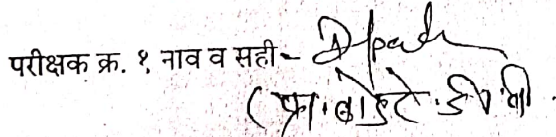 परीक्षक क्र. १ नाव व सही -
(प्रा. बोडते. डी. बी.